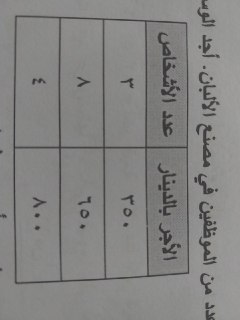 عدد من الموظفين في مصنع الألبان. أجد
عدد الأشخاص ٣ ٨ ٤
الأجر بالدينار ٣٥٠ ٦٥٠ ٨٠٠